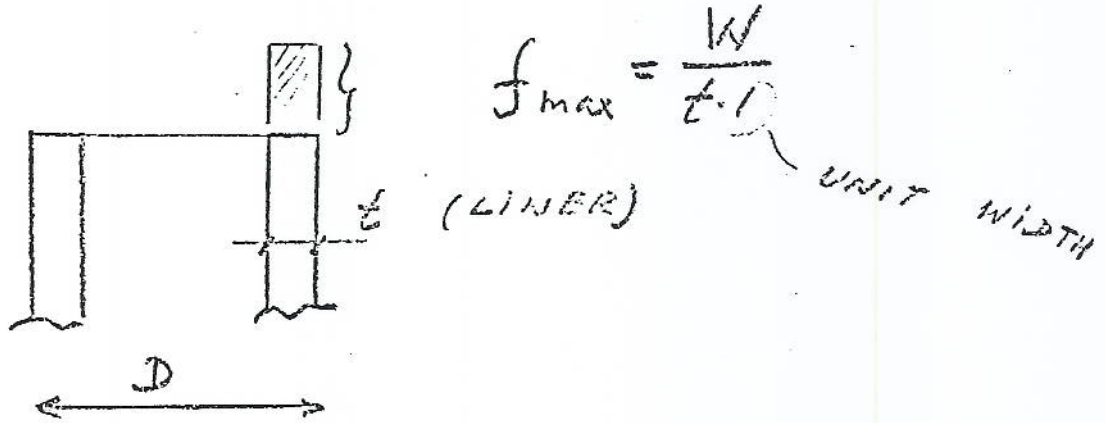 f max = W / t·1
UNIT WIDTH
t (LINER)
D